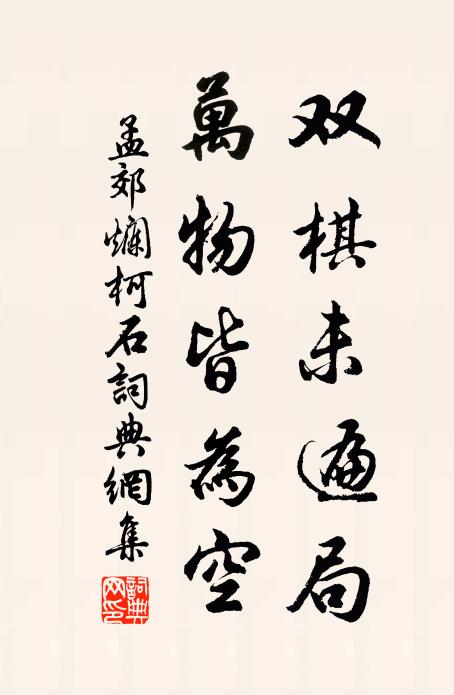 双棋未遍局
萬物皆為空
孟郊爛柯石詞典網集
詞典网印